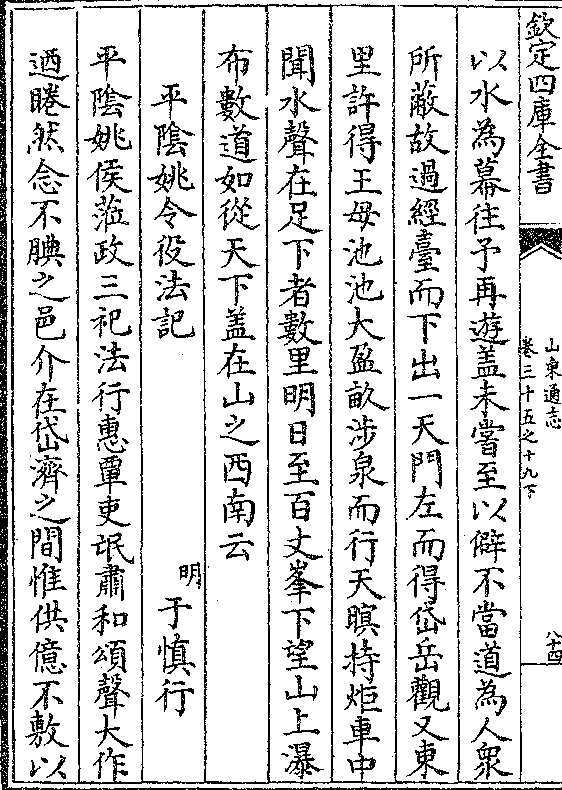 欽定四庫全書
山東通志
卷三十五之十九下
八十四
以水為幕往予再遊盖未嘗至以僻不當道為人衆
所蔽故過經臺而下出一天門左而得岱岳觀又東
里許得王母池池大盈畝涉泉而行天暝持炬車中
聞水聲在足下者數里明日至百丈峯下望山上瀑
布數道如從天下盖在山之西南云
平隂姚令役法記
明于慎行
平隂姚侯蒞政三祀法行惠覃吏氓肅和頌聲大作
迺睠然念不腆之邑介在岱濟之間惟供億不敷以